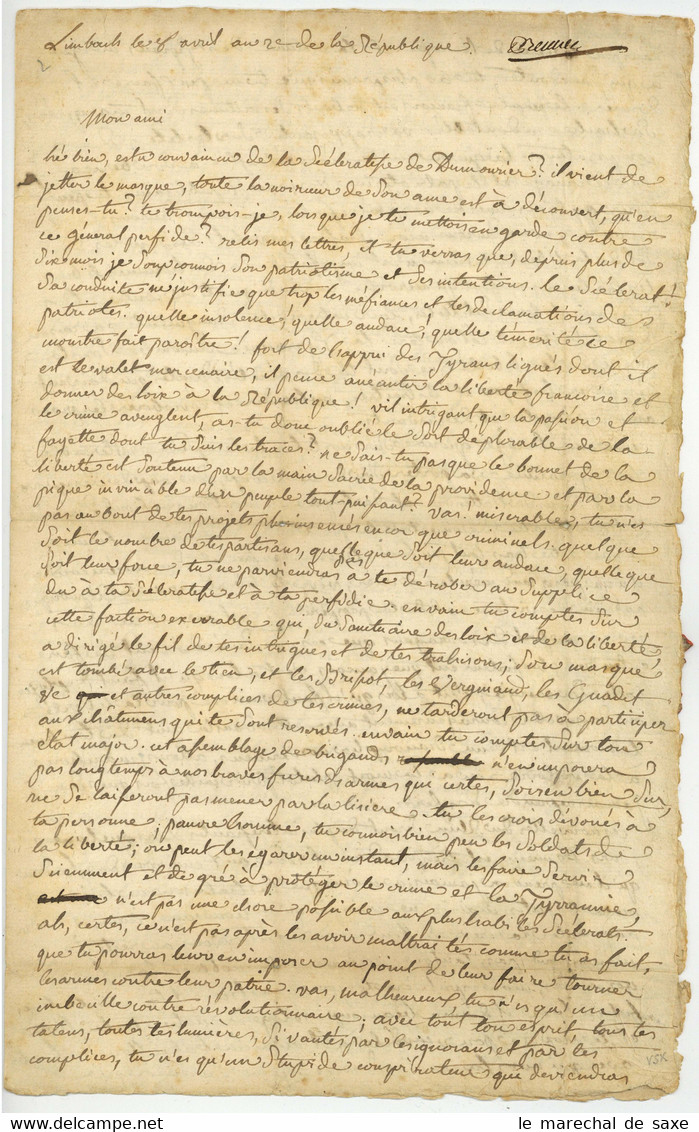 Limbach le 8 avril an 2e de la République.
Mon ami
hé bien, es tu convaincu de la scélératesse de Dumourier? il vient de
jetter le masque, toute la noirceur de son ame est à découvert, qu'en
penses-tu? te trompois-je, lorsque je te mettois en garde contre
ce général perfide? relis mes lettres, et tu verras que, depuis plus de
six mois je soupconnois son patriotisme et ses intentions. le scélerat!
sa conduite ne justifie que trop les méfiances et les déclamations des
patriotes. quelle insolence! quelle audace! quelle témerité ce
monstre fait paroître! fort de l'appui des Tyrans ligués dont il
est le valet mercenaire, il pense anéantir la liberté francoise et
donner des loix à la République! vil intrigant que la passion et
le crime aveuglent, as-tu donc oublié le sort déplorable de la
fayette dont tu suis les traces? ne sais-tu pas que le bonnet de la
liberté est soutenu par la main sacrée de la providence et par la
pique invincible d'un peuple tout-puissant? vas! misérable, tu n'es
pas au bout de tes projets plus insensés encor que criminels. quelque
soit le nombre de tes partisans, quelque soit leur audace, quelle que
soit leur force, tu ne parviendras pas à te dérober au supplice
du à ta scélératesse et à ta perfidie. envain tu comptes sur
cette faction exécrable qui, du sanctuaire des loix et de la liberté,
a dirigé le fil de tes intrigues et de tes trahisons; son masque
est tombé avec le tien, et les Brissot, les Vergniaud, les Guadet
et autres complices de tes crimes, ne tarderont pas à participer
aux châtimens qui te sont reservés. envain tu comptes sur ton
état major. cet assemblage de brigands n'en imposera
pas longtemps à nos braves freres d'armes qui certes, sois en bien sur,
ne se laisseront pas mener par la lisiere. tu les crois dévoués à
ta personne; pauvre homme, tu connois bien peu les soldats de
la liberté; on peut les égarer un instant, mais les faire servir
sciemment et de gré à protéger le crime et la Tyrannie,
n'est pas une chose possible aux plus habiles scélerats.
ah, certes, ce n'est pas après les avoir maltraités comme tu as fait,
que tu pourras leur en imposer au point de leur faire tourner
les armes contre leur patrie. vas, malheureux, tu n'es qu'un
imbecille contre révolutionnaire; avec tout ton esprit, tous tes
talens, toutes tes lumières, si vantés par les ignorans et par tes
complices, tu n'es qu'un stupide conspirateur que deviendras
le marechal de saxe